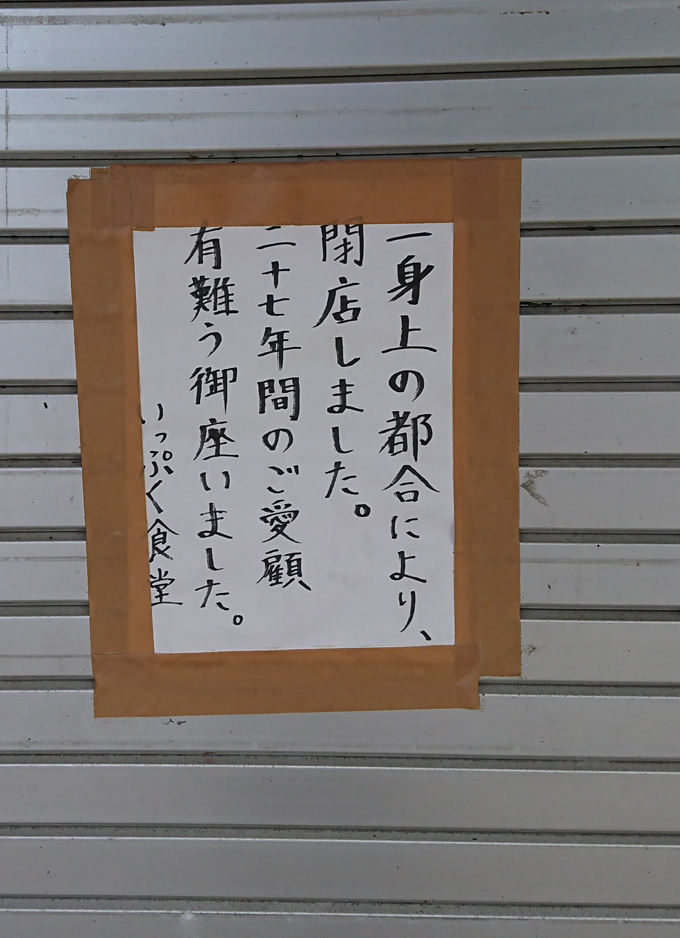 一身上の都合により、
閉店しました。
二十七年間のご愛顧
有難う御座いました。
いっぷく食堂